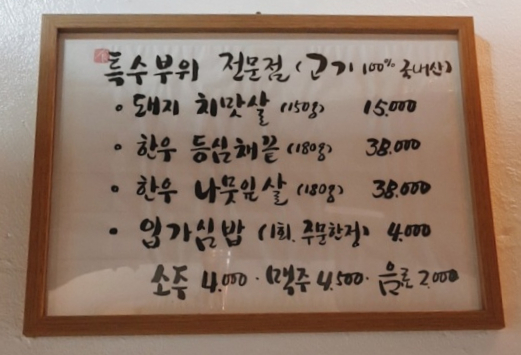 특수부위 전문점 (고기 100% 국내산)
• 돼지 치맛살 (150g) 15.000
• 한우 등심채끝 (180g) 38.000
• 한우 나뭇잎살 (180g) 38.000
• 입가심밥 (1회, 주문한정) 4.000
소주 4.000 · 맥주 4.500 · 음료 2.000